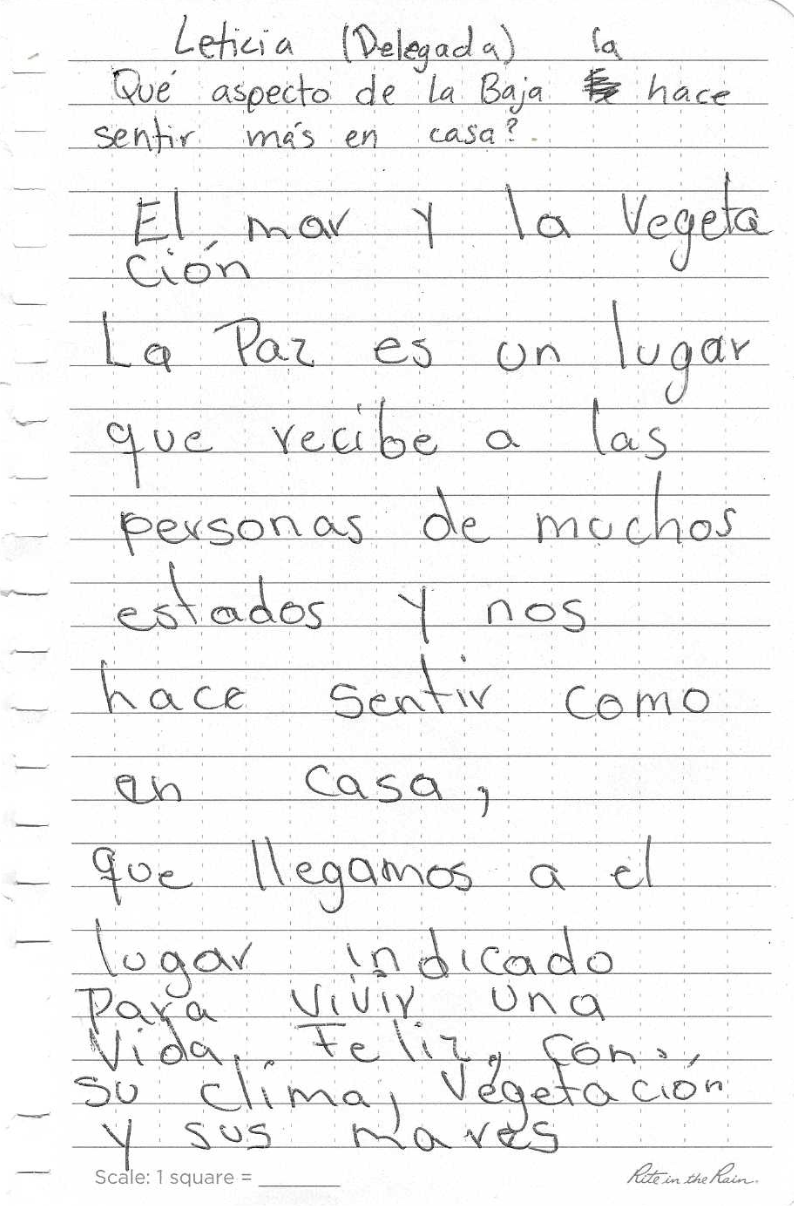 Leticia (Delegada) la
Qué aspecto de la Baja hace
sentir más en casa?
El mar y la vegeta
ción
La Paz es un lugar
que recibe a las
personas de muchos
estados y nos
hace sentir como
en casa,
que llegamos a el
lugar indicado
para vivir una
vida Feliz, con
su clima, vegetación
y sus mares
Scale: 1 square = ________
Rite in the Rain.